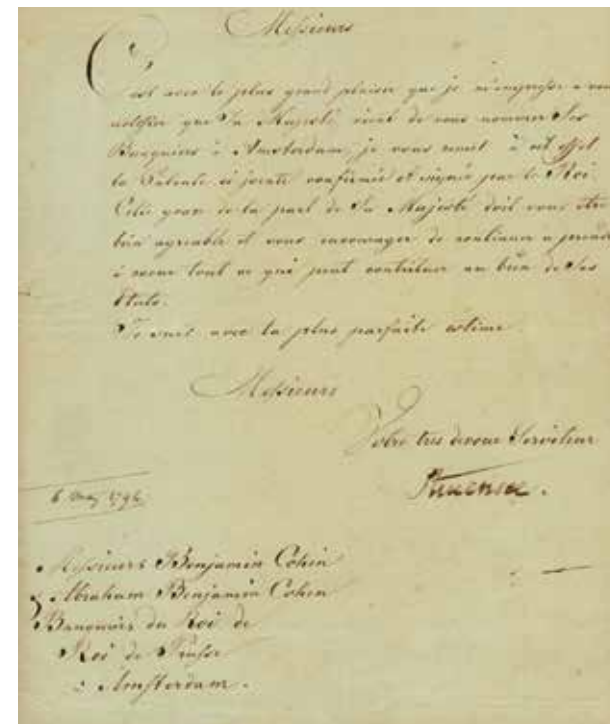 Messieurs
C'est avec le plus grand plaisir que je m'empresse a vous
notifier que Sa Majesté vient de vous nommer Ses
Banquiers à Amsterdam, je vous remet à cet effet
la Patente ci jointe confirmée et signée par le Roi.
Cette grace de la part de Sa Majesté doit vous etre
bien agreable et vous encourager de continuer a prendre
à coeur tout ce qui peut contribuer au bien de Ses
Etats.
Je suis avec la plus parfaite estime
Messieurs
Votre tres devoué Serviteur
Struensee.
6 May 1796.
Messieurs Benjamin Cohen
& Abraham Benjamin Cohen
Banquiers du Roi de
Roi de Prusse
à Amsterdam.